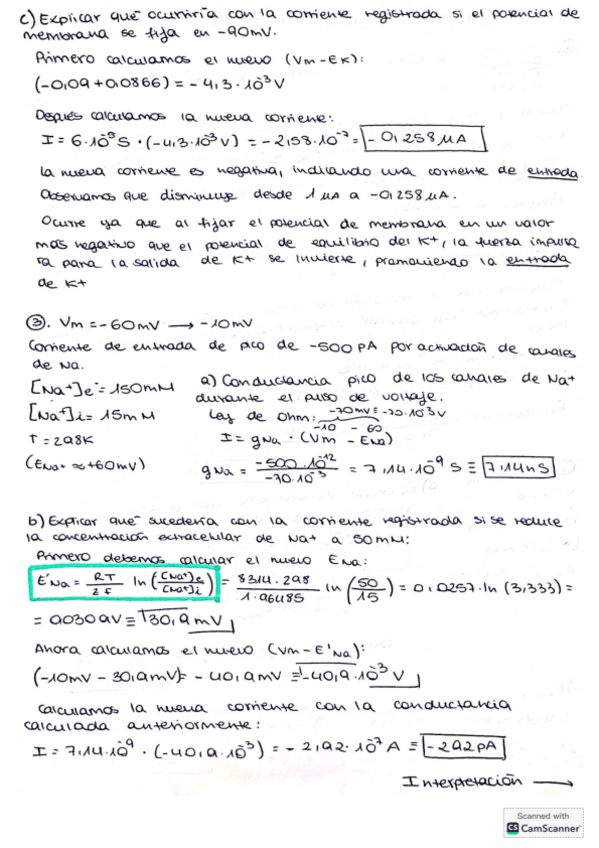 c) Explicar qué ocurriría con la corriente registrada si el potencial de
membrana se fija en -90mV.
Primero calculamos el nuevo (Vm - EK):
(-0,09 + 0,0866) = - 4,3 · 10⁻³ V
Después calculamos la nueva corriente:
I = 6 · 10⁻⁵ S · (-4,3 · 10⁻³ V) = - 2,58 · 10⁻⁷ = - 0,258 µA
La nueva corriente es negativa, indicando una corriente de entrada.
Observamos que disminuye desde 1 µA a -0,258 µA.
Ocurre ya que al fijar el potencial de membrana en un valor
más negativo que el potencial de equilibrio del K+, la fuerza impulso
ra para la salida de K+ se invierte, promoviendo la entrada
de K+
③. Vm = -60mV → -10mV
Corriente de entrada de pico de -500 pA por activación de canales
de Na.
[Na+]e = 150mM
[Na+]i = 15mM
T = 298K
(ENa+ ≈ +60mV)
a) Conductancia pico de los canales de Na+
durante el pulso de voltaje.
Ley de Ohm: -70mV ≡ -70 · 10⁻³ V
-10 - 60
I = gNa · (Vm - ENa)
gNa = -500 · 10⁻¹² / -70 · 10⁻³ = 7,14 · 10⁻⁹ S ≡ 7,14 nS
b) Explicar qué sucedería con la corriente registrada si se reduce
la concentración extracelular de Na+ a 50mM:
Primero debemos calcular el nuevo ENa:
E'Na = RT / zF ln ([Na+]e / [Na+]i) = 8314 · 298 / 1 · 96485 ln (50 / 15) = 0,0257 · ln (3,333) =
= 0,0309V ≡ 30,9 mV
Ahora calculamos el nuevo (Vm - E'Na):
(-10mV - 30,9mV) = - 40,9mV ≡ -40,9 · 10⁻³ V
Calculamos la nueva corriente con la conductancia
calculada anteriormente:
I = 7,14 · 10⁻⁹ · (-40,9 · 10⁻³) = - 2,92 · 10⁻⁷ A ≡ - 292 pA
Interpretación →
Scanned with
CS CamScanner